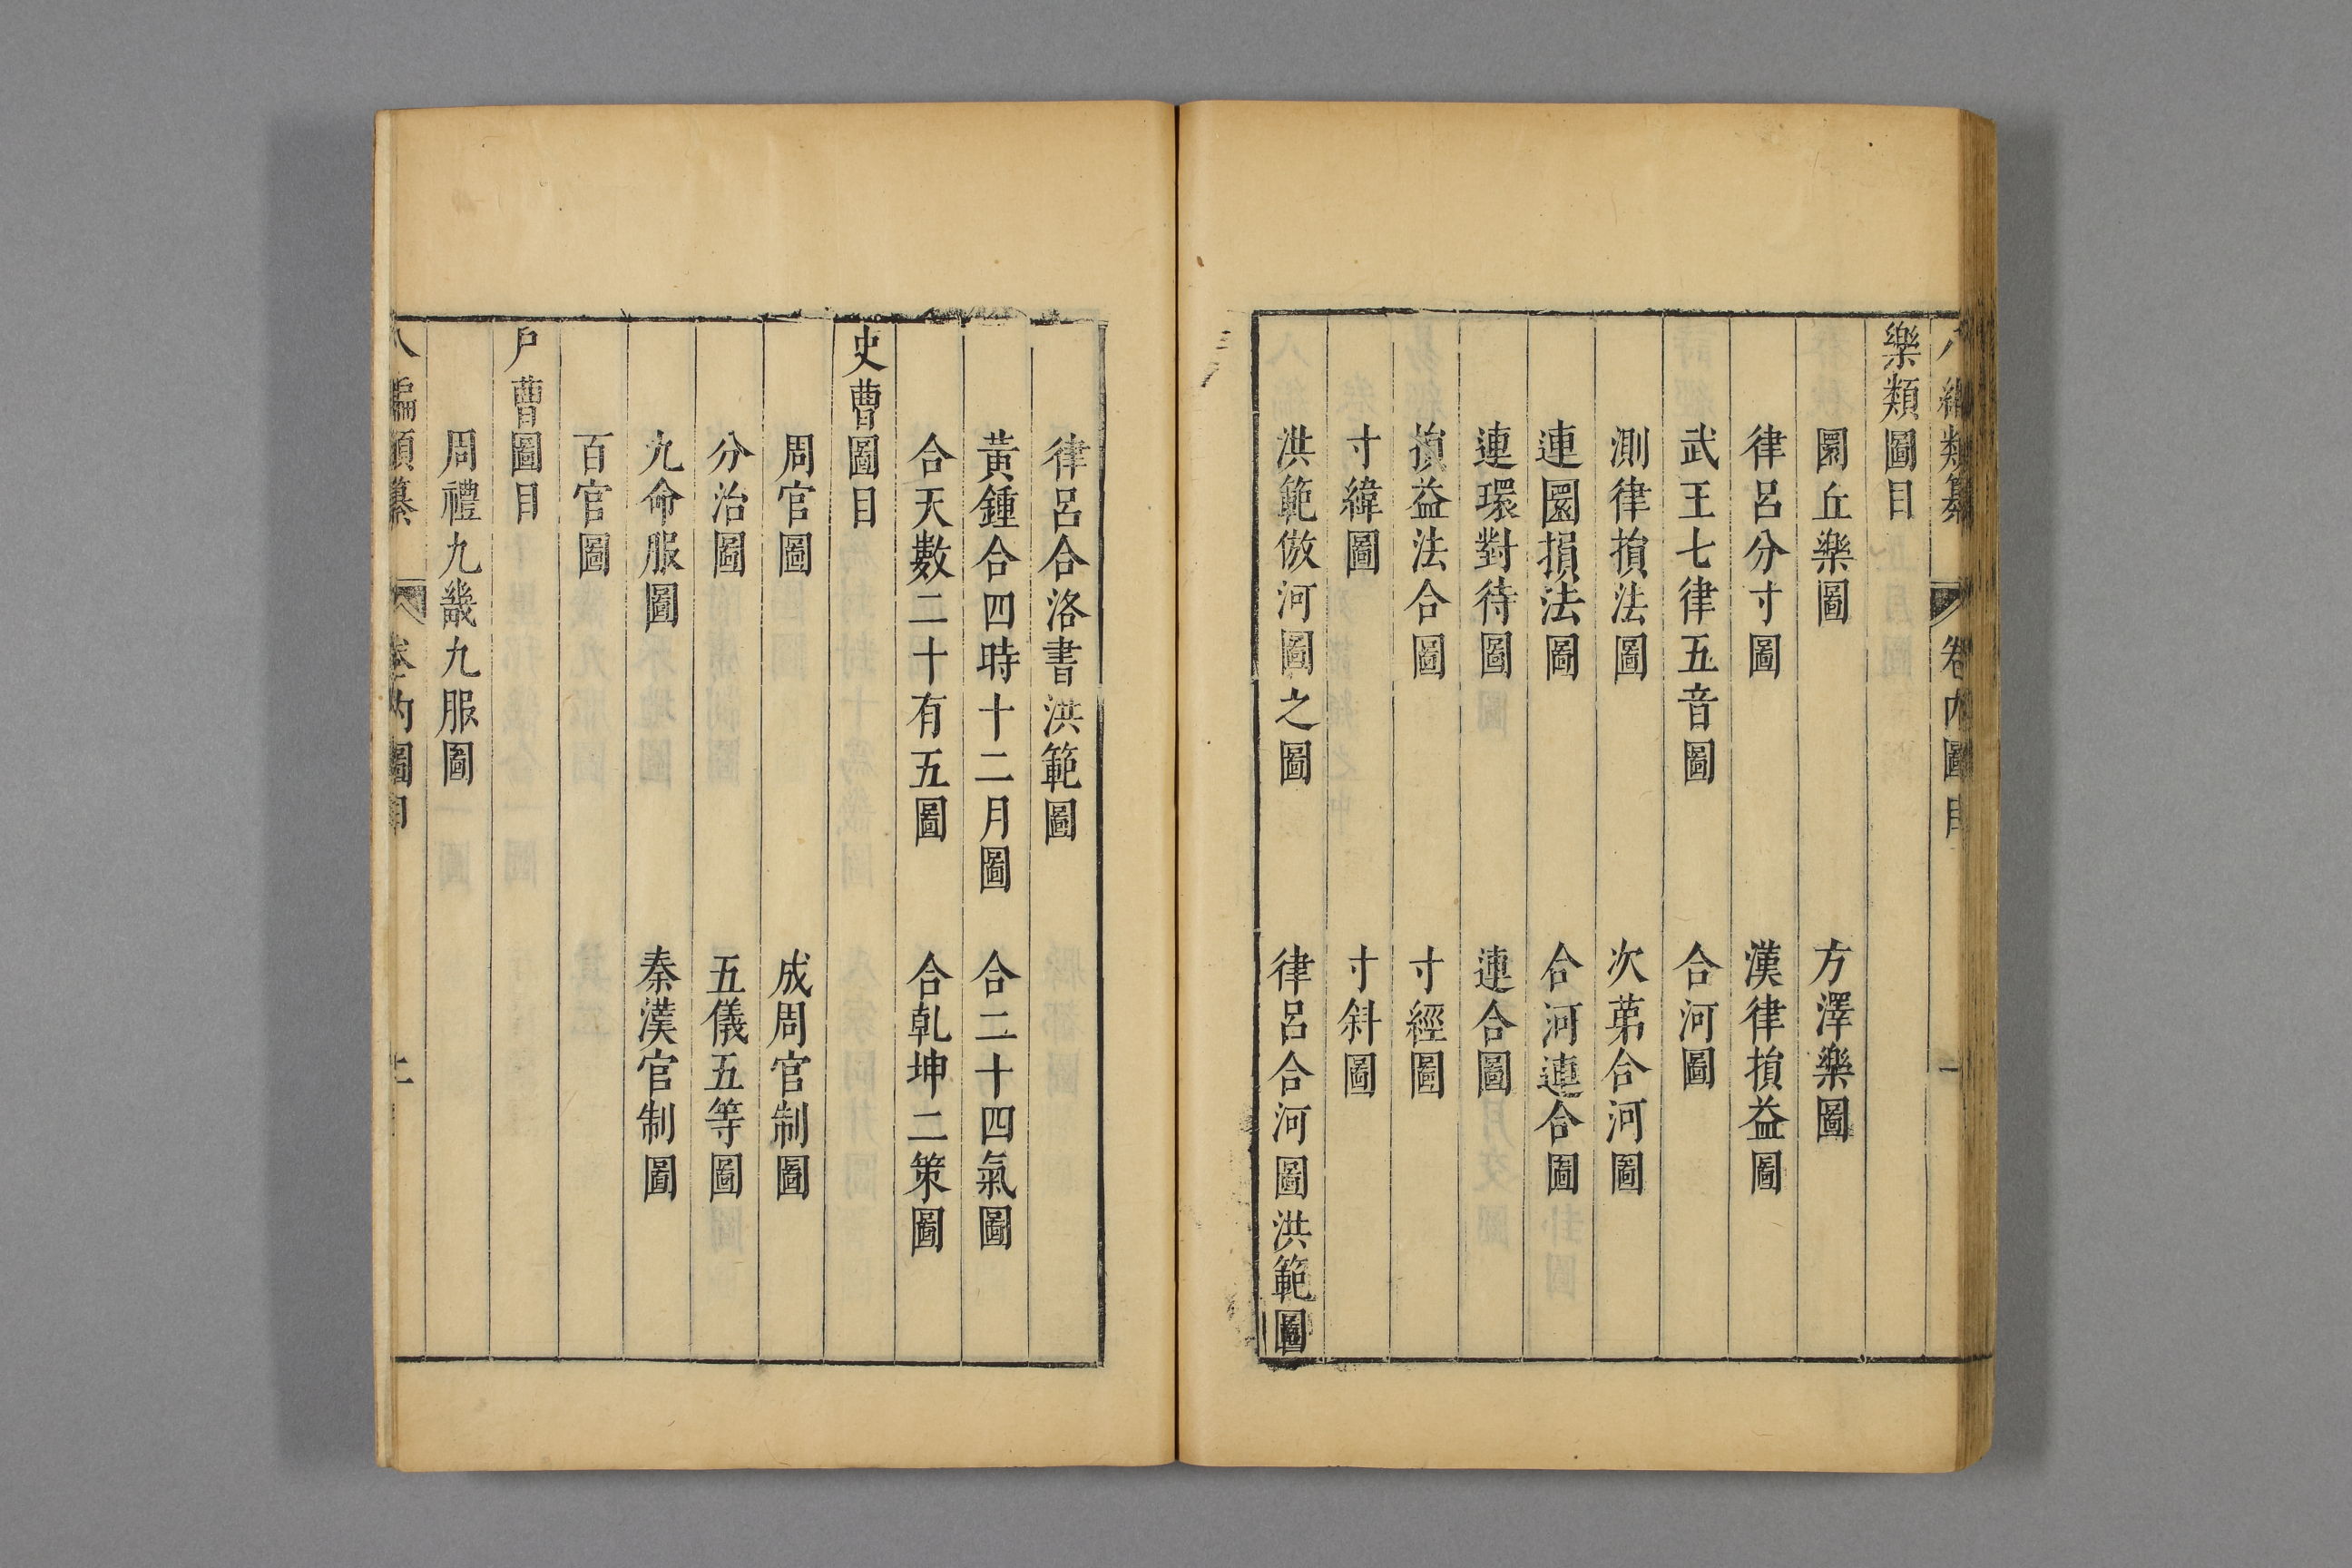 八編類纂 卷內圖目
樂類圖目
圜丘樂圖 方澤樂圖
律呂分寸圖 漢律損益圖
武王七律五音圖 合河圖
測律損法圖 次苐合河圖
連圜損法圖 合河連合圖
連環對待圖 連合圖
損益法合圖 寸經圖
寸緯圖 寸斜圖
洪範倣河圖之圖 律呂合河圖洪範圖
律呂合洛書洪範圖
黃鍾合四時十二月圖 合二十四氣圖
合天數二十有五圖 合乾坤二策圖
史曹圖目
周官圖 成周官制圖
分治圖 五儀五等圖
九命服圖 秦漢官制圖
百官圖
戶曹圖目
周禮九畿九服圖
八編類纂 卷內圖目